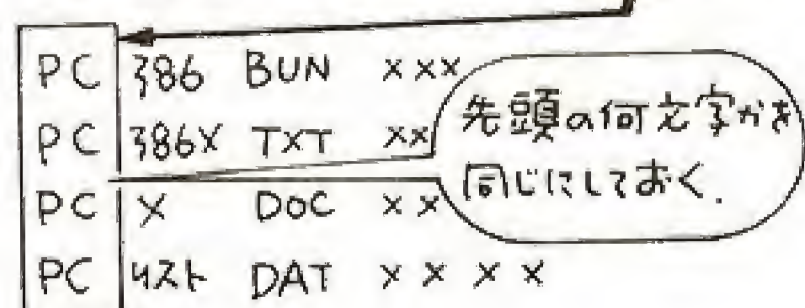 PC 386 BUN ×××
PC 386X TXT ××
PC X DOC ××
PC リスト DAT ××××
先頭の何文字かを
同じにしておく.